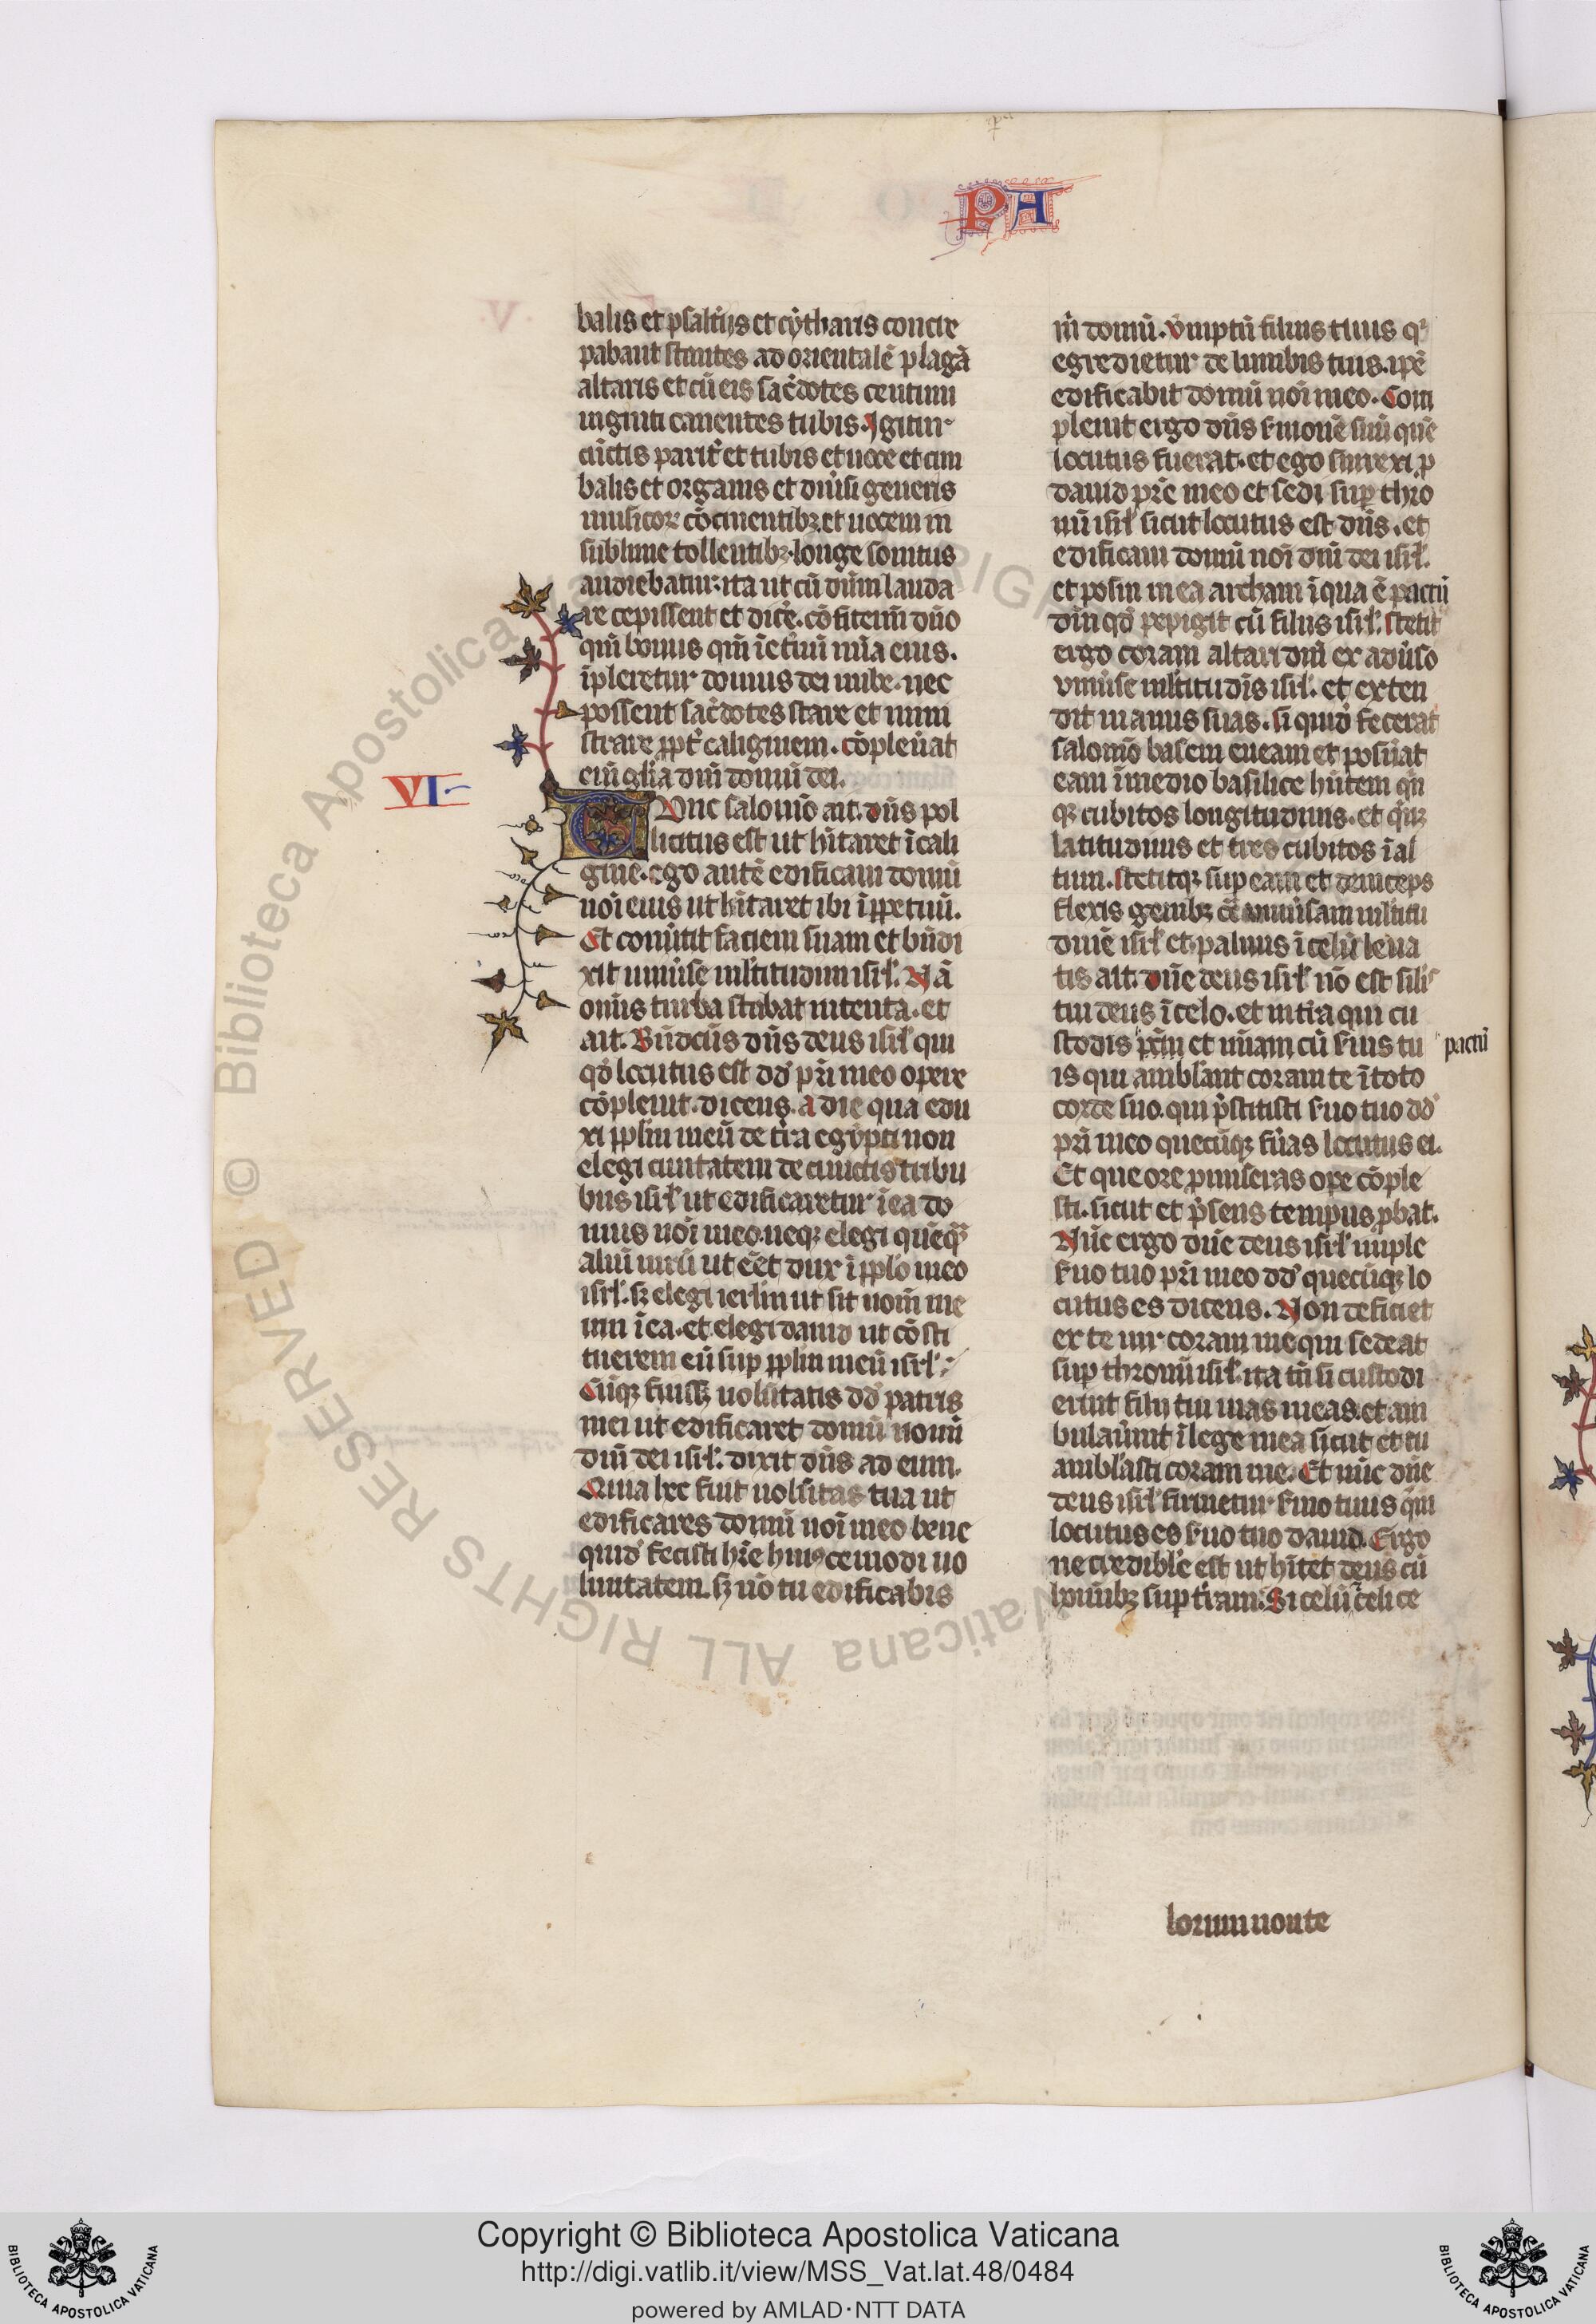 PA
balis et psalt'iis et cytharis concre
pabant stantes ad orientalē plagā
altaris et cū eis sac̄dotes centum
uiginti canentes tubis. Igitur
cūctis parit' et tubis et uoce et cim
balis et organis et diũsi generis
musicoꝝ cōcinentibꝫ et uocem in
sublime tollentibꝫ. longe sonitus
audiebatur. ita ut cū dūm lauda
re cepissent et dic'e. cōfitemī dño
qm̄ bonus qm̄ ī et'nū mīa eius.
īpleretur domus dei nube. nec
possent sac̄dotes stare et mini
strare ꝓpt' caliginem. cōpleũat
enī glīa dnī domū dei.
VI
Tunc salomō ait. dñs pol
licitus est ut hītaret ī cali
gine. ego autē edificaui domū
noī eius ut hītaret ibi ī ꝑpetuū.
Et conũtit faciem suam et bñdi
xit uniũse ml'titudini isrł. Nā
omīs turba stabat intenta. et
ait. Bñdcūs dñs deus isrł qui
qđ locutus est dđ pr̄i meo opere
cōpleuit. dicens. a die qua edu
xi ppłm meū de t'ra egypti non
elegi ciuitatem de cunctis tribu
bus isrł ut edificaretur ī ea do
mus noī meo. neqꝫ elegi quēqꝫ
aliū uirū ut eēt dux ī ppło meo
isrł. sꝫ elegi ierłm ut sit nom̄ me
um ī ea. et elegi dauid ut cōsti
tuerem eū suꝑ ppłm meū isrł.
Cūqꝫ fuissꝫ uolūtatis dđ patris
mei ut edificaret domū nomī
dnī dei isrł. dixit dñs ad eum.
Quia hec fuit uolūtas tua ut
edificares domū noī meo bene
quid' fecisti hr̄e huiꝰcemodi uo
luntatem. sꝫ nō tu edificabis
m̄ domū. Verūptñ filius tuus qⁱ
egredietur de lumbis tuis. ip̄e
edificabit domū noī meo. Com
pleuit ergo dñs s'monē suū quē
locutus fuerat. et ego surrexi ꝓ
dauid pr̄e meo et sedi suꝑ thro
nū isrł sicut locutus est dñs. et
edificaui domū noī dnī dei isrł.
et posui in ea archam ī qua ē pactū
dnī qđ pepigit cū filiis isrł. Stetit
ergo coram altari dnī ex adũso
uniũse ml'titudīs isrł. et exten
dit manus suas. si quid' fecerat
salomō basem eneam et posũat
eam ī medio basilice hñtem qn̄
qꝫ cubitos longitudinis. et qn̄qꝫ
latitudinis et tres cubitos ī al
tum. Stetitqꝫ suꝑ eam et deinceps
flexis genibꝫ cōt' uniũsam ml'titu
dinē isrł et palmis ī celū leua
tis ait. dñe deus isrł nō est silīs
tui deus ī celo. et in t'ra qui cu
stodis pcm̄ et mīam cū s'uis tu
pactū
is qui ambłant coram te ī toto
corde suo. qui p̄stitisti s'uo tuo dđ
pr̄i meo quecūqꝫ fũas locutus ei.
Et que ore ꝓmiseras oꝑe cōple
sti. sicut et p̄sens tempus ꝓbat.
Nūc ergo dñe deus isrł imple
s'uo tuo pr̄i meo dđ quecūqꝫ lo
cutus es dicens. Non deficiet
ex te uir coram me qui sedeat
suꝑ thronū isrł. ita tñ si custodi
erint filii tui uias meas. et am
bulaũint ī lege mea sicut et tu
ambłasti coram me. Et nūc dñe
deus isrł firmetur s'mo tuus quē
locutus es s'uo tuo dauid. Ergo
ne credibile est ut hītet deus cū
hoīnibꝫ suꝑ t'ram. Si celū ⁊ celi ce
lorum non te
Copyright © Biblioteca Apostolica Vaticana
http://digi.vatlib.it/view/MSS_Vat.lat.48/0484
powered by AMLAD·NTT DATA
BIBLIOTECA APOSTOLICA VATICANA
BIBLIOTECA APOSTOLICA VATICANA
© Biblioteca Apostolica Vaticana ALL RIGHTS RESERVED